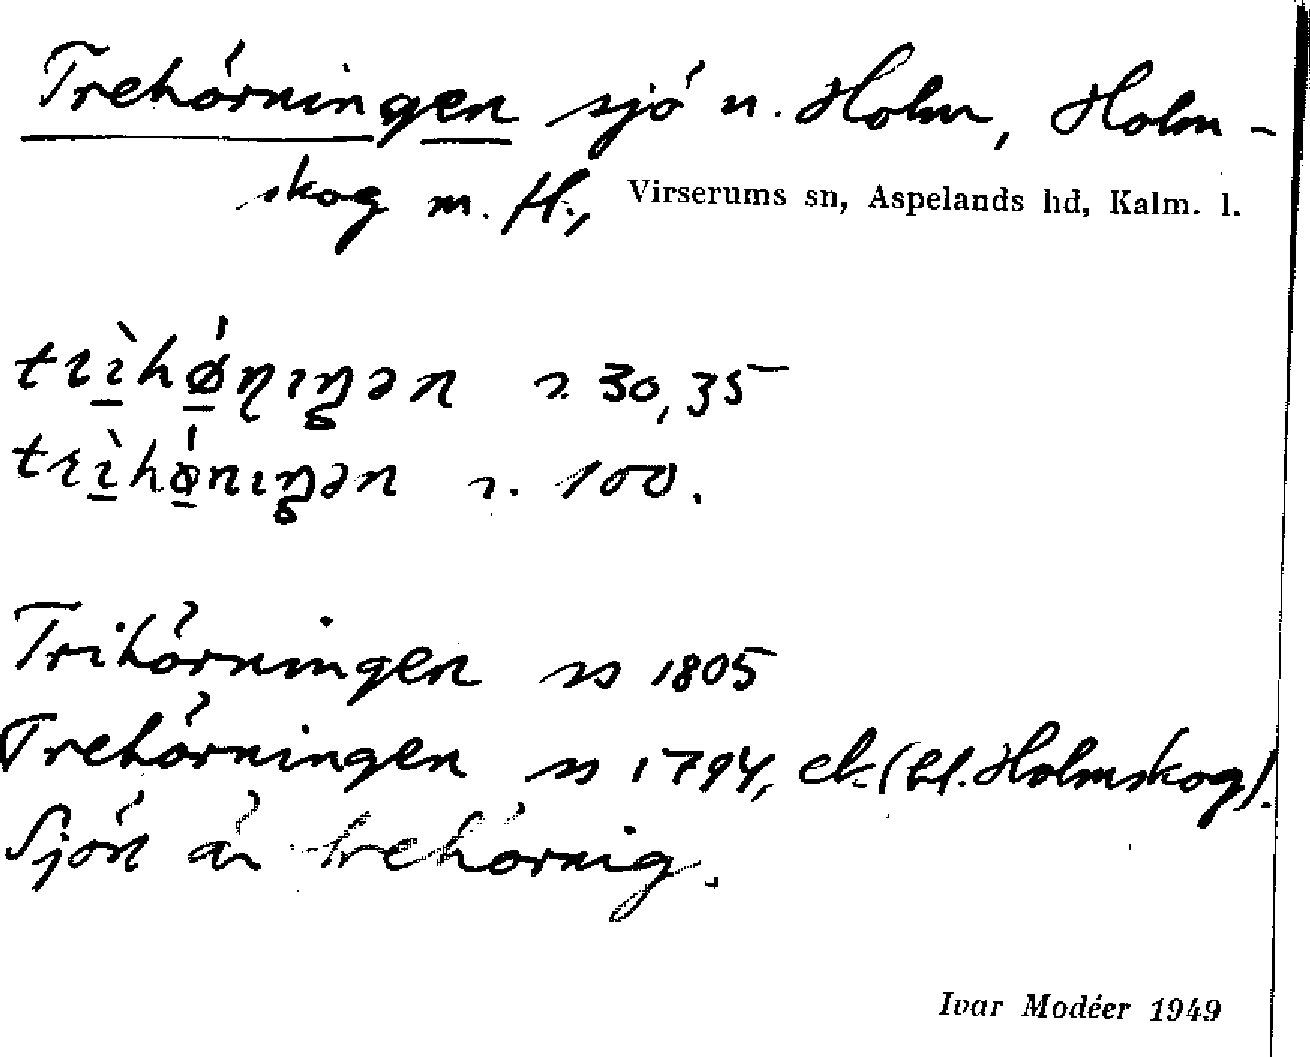 Trehörningen sjö n. Holm, Holm-
skog m. fl., Virserums sn, Aspelands hd, Kalm. l.
trìhǿɳıŋən r. 30, 35
trìhǿnıŋən r. 100.
Trihörningen ss 1805
Trehörningen ss 1794, ek (bl. Holmskog).
Sjön är trehörnig.
Ivar Modéer 1949